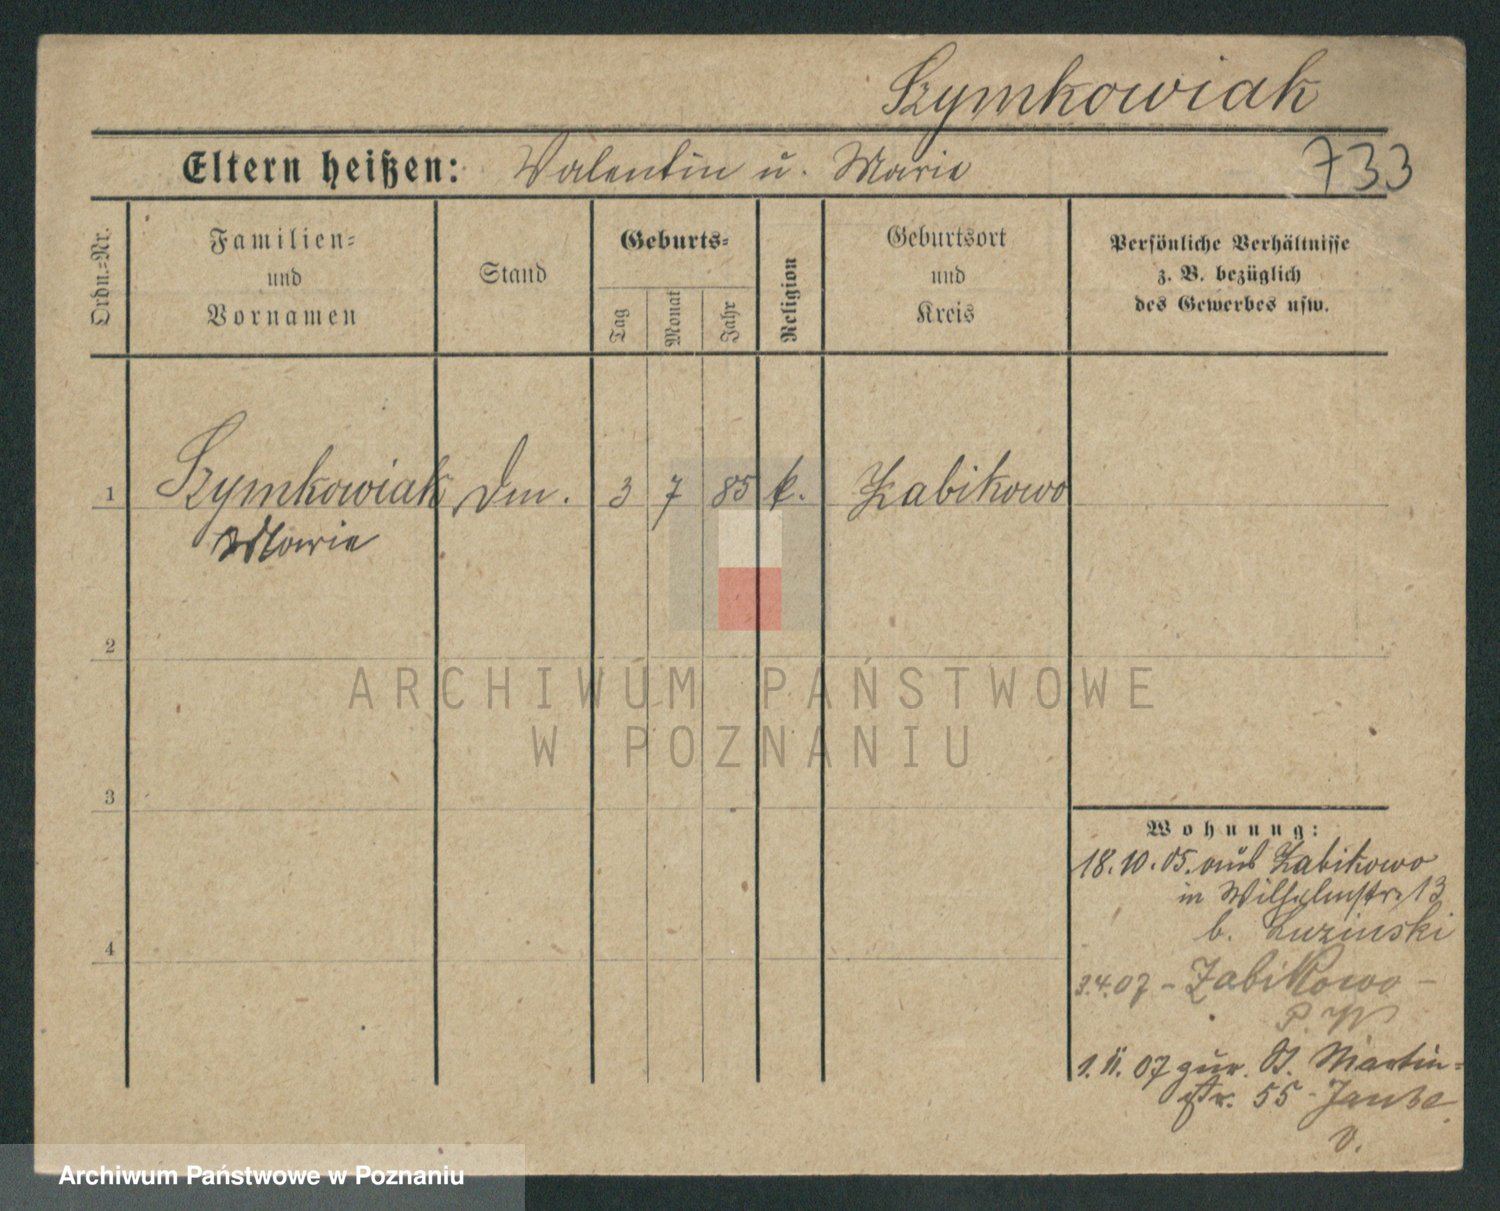 Szymkowiak
Eltern heißen: Valentin u. Marie
733
Ordn.=Nr.
Familien=
und
Vornamen
Stand
Geburts=
Tag
Monat
Jahr
Religion
Geburtsort
und
Kreis
Persönliche Verhältnisse
z. B. bezüglich
des Gewerbes usw.
1 Szymkowiak Dm. 3 7 85 k. Żabikowo
Marie
2
3
4
ARCHIWUM PAŃSTWOWE
W POZNANIU
Wohnung:
18.10.05. aus Żabikowo
in Wilhelmstr. 13
b. Luzinski
3.4.07 - Zabikowo -
P. W
1.11.07 zur. St. Martin=
str. 55
v.
Archiwum Państwowe w Poznaniu